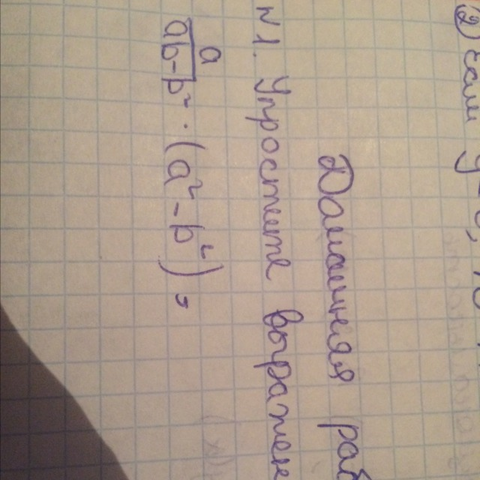 ② если y
Домашняя раб
№1. Упростите выражен
a/(ab-b²) · (a²-b²),